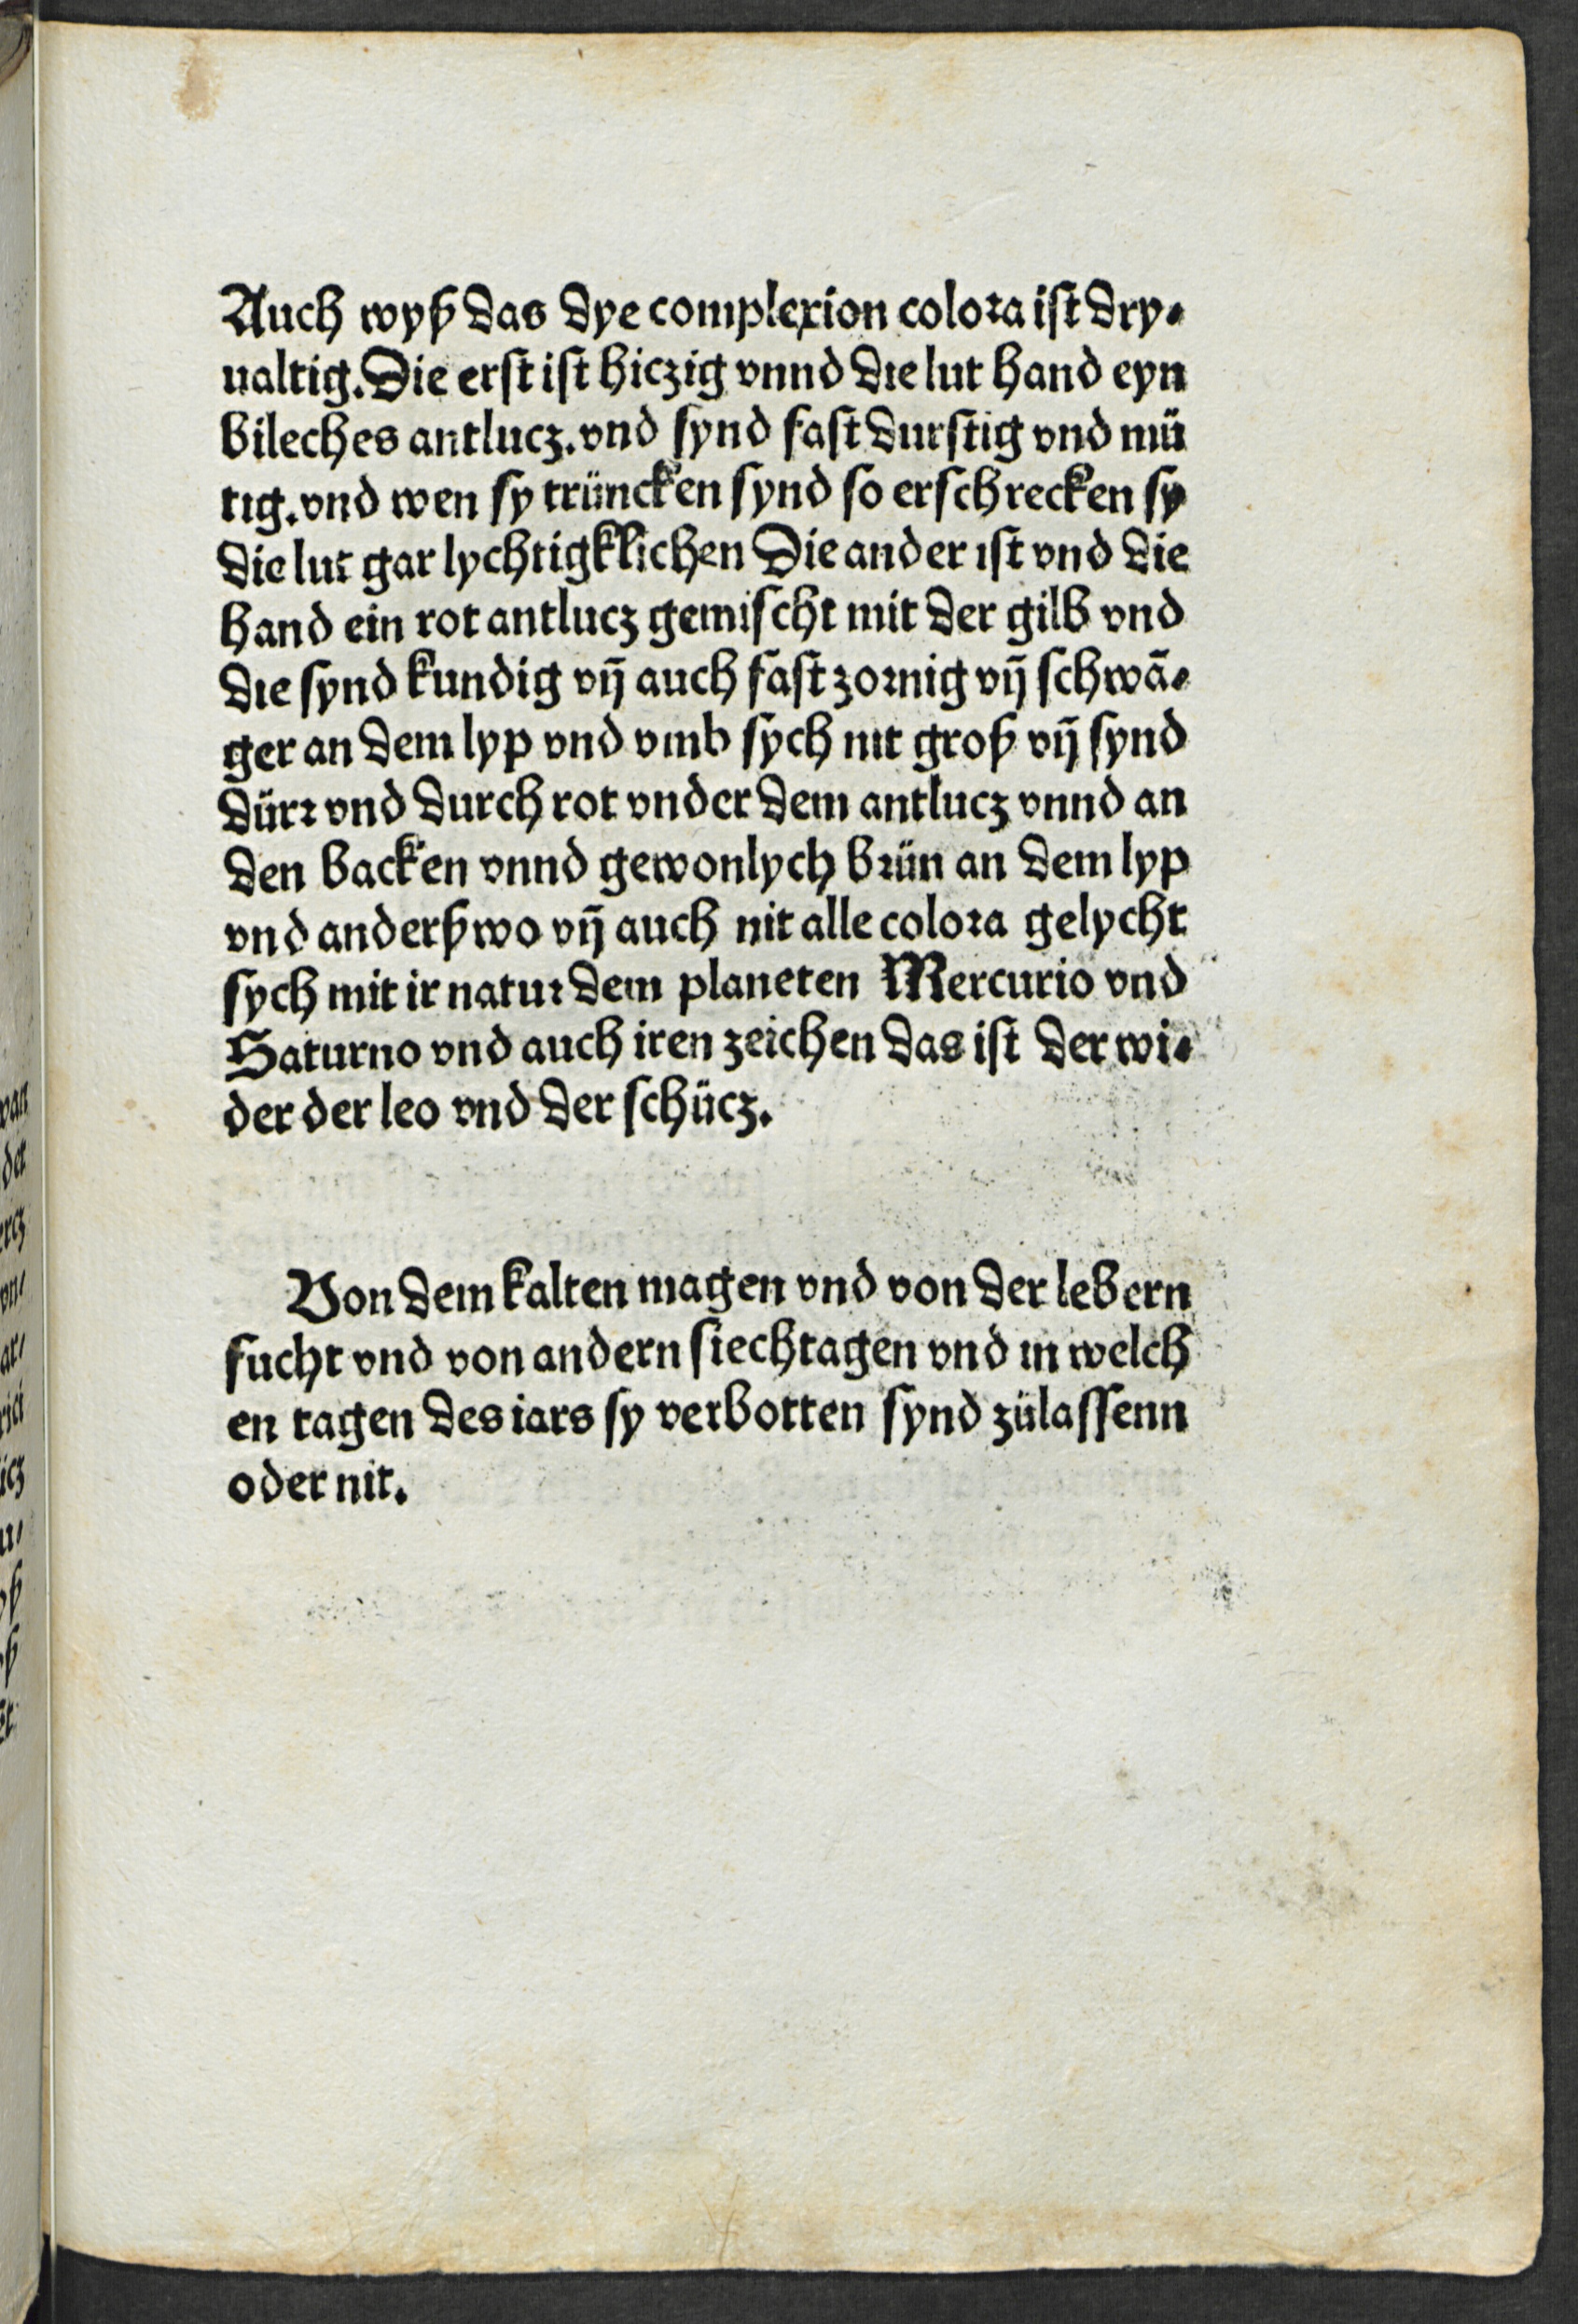 Auch wyß das dye complexion colora ist dry⸗
ualtig. Die erst ist hiczig vnnd die lut hand eyn
bileches antlucz. vnd synd fast durstig vnd mü
tig. vnd wen sy trüncken synd so erschrecken sy
die lut gar lychtigklichen Die ander ist vnd die
hand ein rot antlucz gemischt mit der gilb vnd
die synd kundig vn̄ auch fast zornig vn̄ schwā⸗
ger an dem lyp vnd vmb sych nit groß vn̄ synd
dürr vnd durch rot vnder dem antlucz vnnd an
den backen vnnd gewonlych brün an dem lyp
vnd anderßwo vn̄ auch nit alle colora gelycht
sych mit ir natur dem planeten Mercurio vnd
Saturno vnd auch iren zeichen das ist der wi⸗
der der leo vnd der schücz.
Von dem kalten magen vnd von der lebern
sucht vnd von andern siechtagen vnd in welch
en tagen des iars sy verbotten synd zülassenn
oder nit.